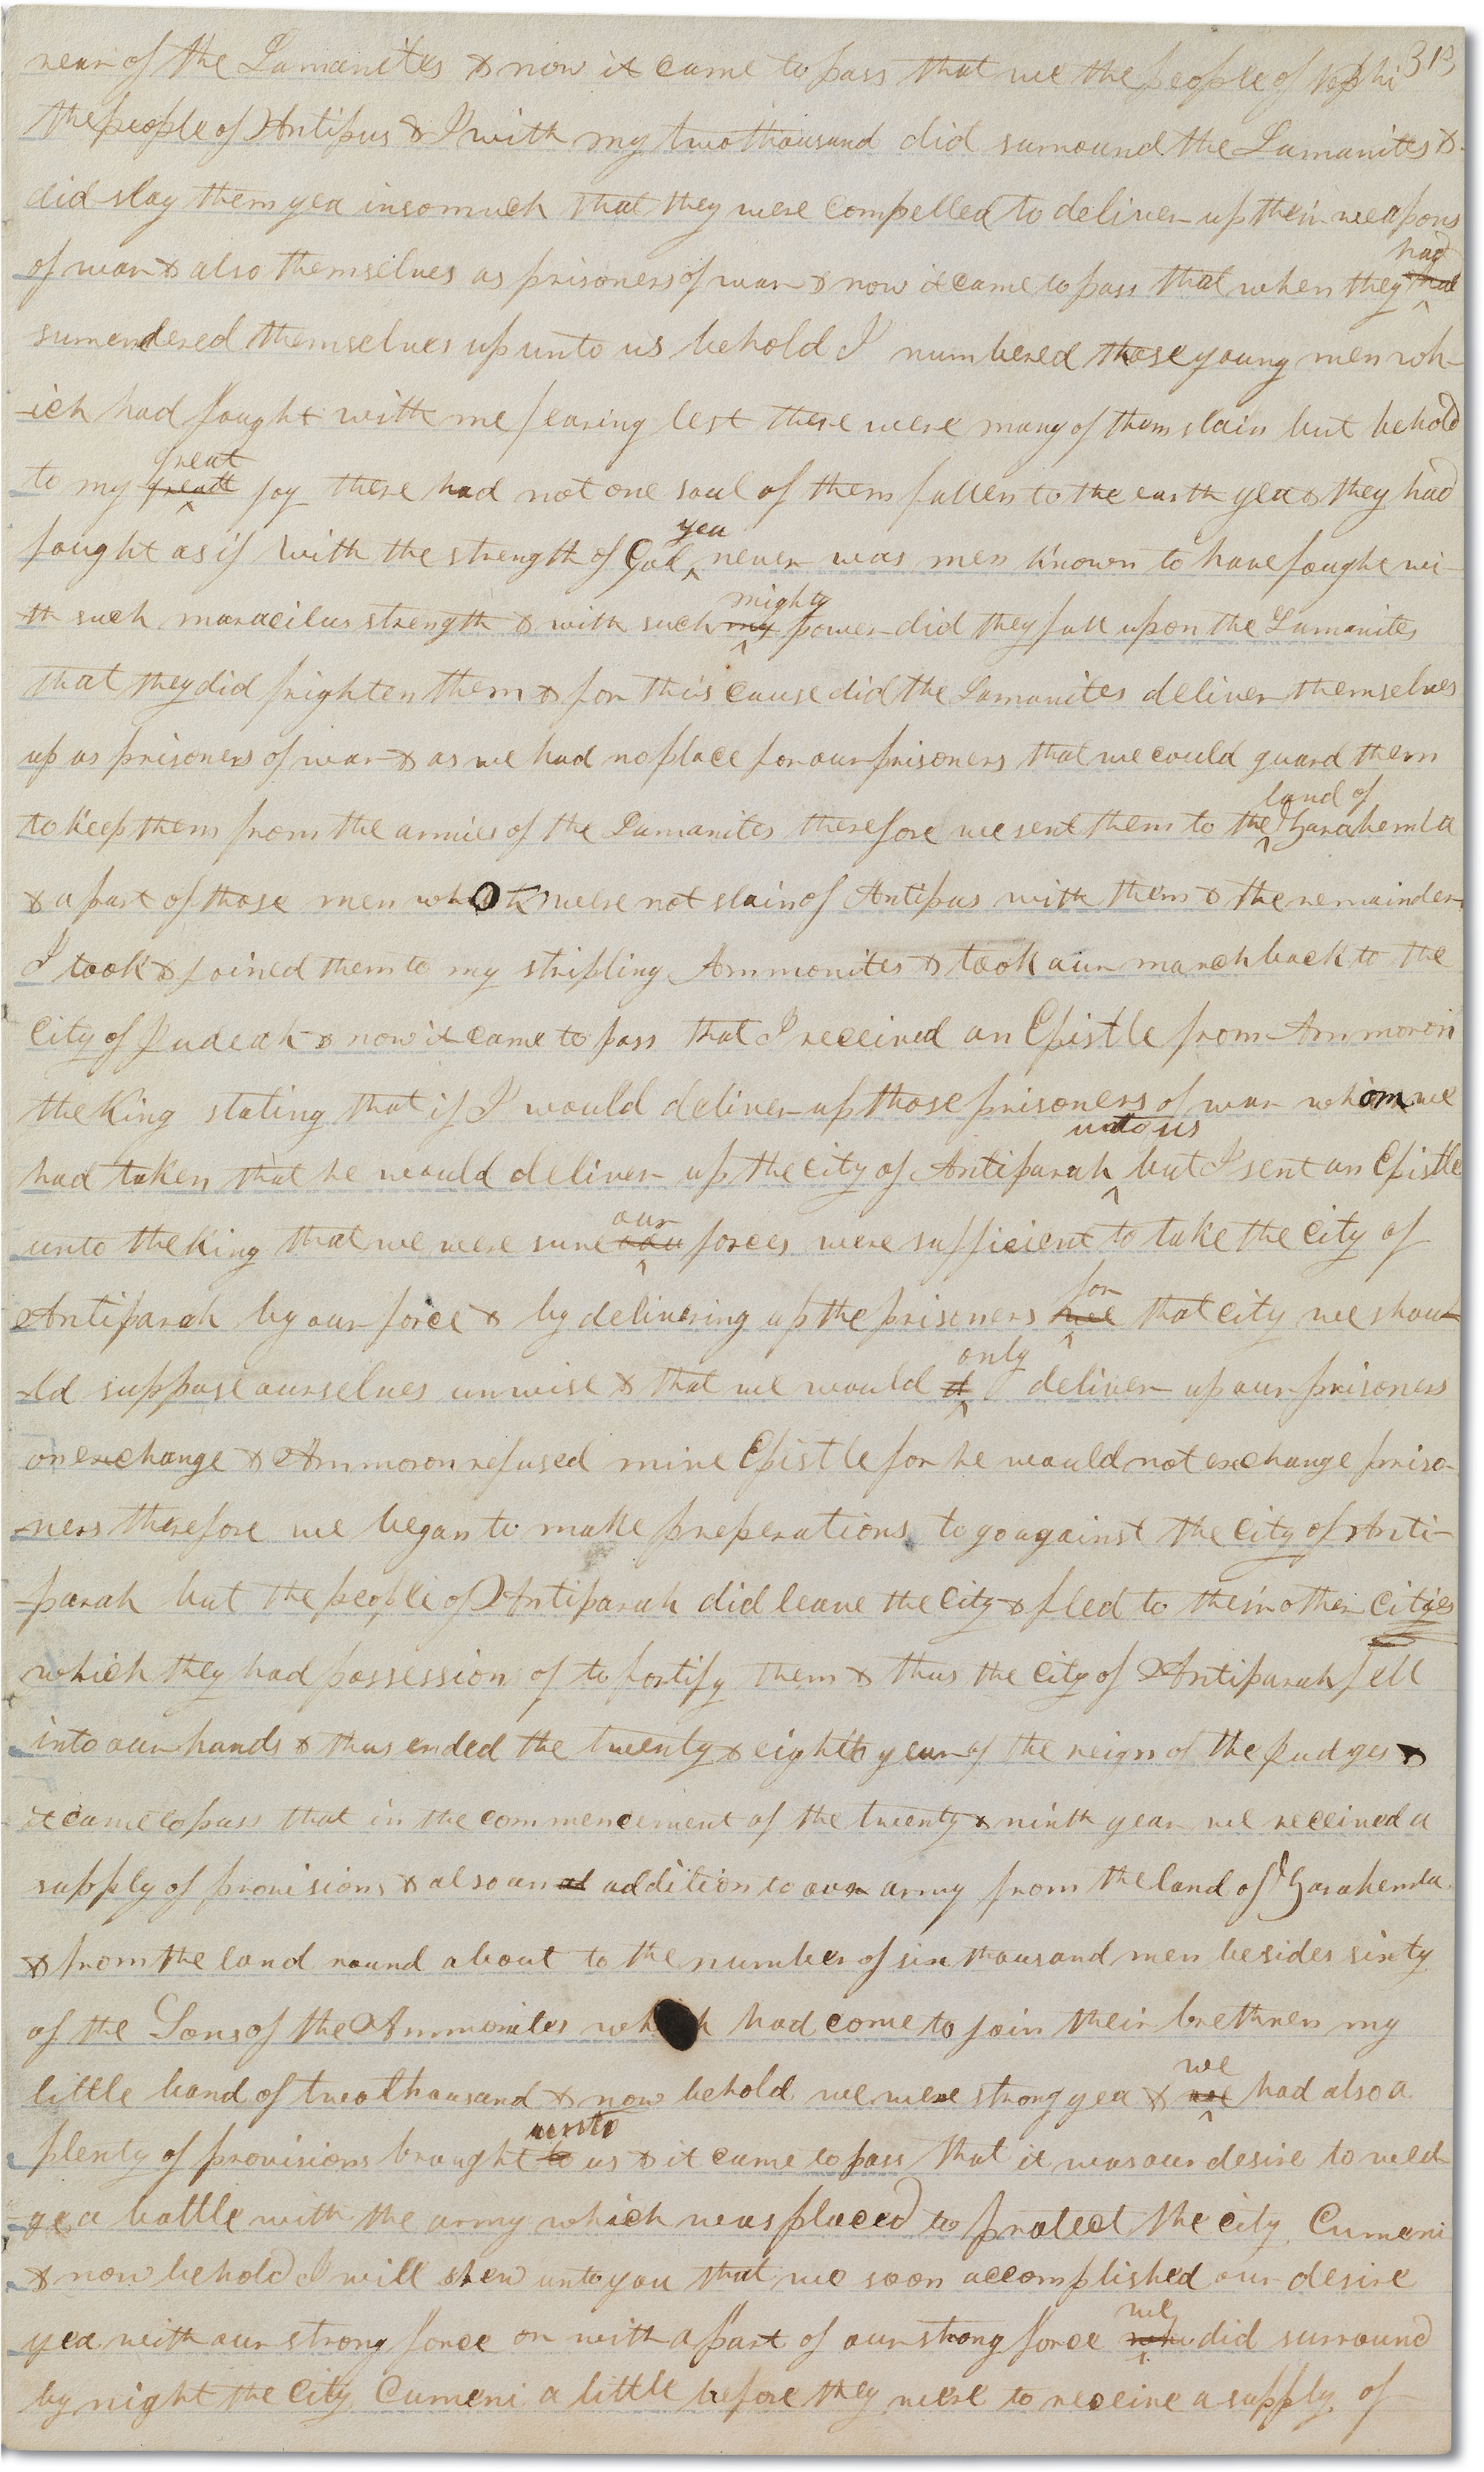 rear of the Lamanites & now it came to pass that we the people of Nephi 313
the people of Antipus & I with my two thousand did surround the Lamanites &
did slay them yea insomuch that they were compelled to deliver up their weapons
had
of war & also themselves as prisoners of war & now it came to pass that when they had
surrendered themselves up unto us behold I numbered those young men wh-
-ich had fought with me fearing lest there were many of them slain but behold
great
to my greatt joy there had not one soul of them fallen to the earth yea & they had
yea
fought as if with the strength of God never was men known to have fought wi-
mighty
th such maracilus strength & with such my power did they fall upon the Lamanites
that they did frighten them & for this cause did the Lamanites deliver themselves
up as prisoners of war & as we had no place for our prisoners that we could guard them
land of
to keep them from the armies of the Lamanites therefore we sent them to the Zarahemla
& a part of those men who were not slain of Antipus with them & the remainder
I took & joined them to my stripling Ammonites & took our march back to the
City of Judeah & now it came to pass that I received an Epistle from Ammoron
the King stating that if I would deliver up those prisoners of war whom we
unto us
had taken that he would deliver up the city of Antiparah but I sent an Epistle
our
unto the King that we were sure forces were sufficient to take the city of
for
Antiparah by our force & by delivering up the prisoners that city we shou-
only
-ld suppose ourselves unwise & that we would d deliver up our prisoners
on exchange & Ammoron refused mine Epistle for he would not exchange priso-
-ners therefore we began to make preperations to go against the city of Anti-
-parah but the people of Antiparah did leave the city & fled to their other cities
which they had possession of to fortify them & thus the city of Antiparah fell
into our hands & thus ended the twenty & eighth year of the reign of the Judges &
it came to pass that in the commencement of the twenty & ninth year we received a
supply of provisions & also an ad addition to our army from the land of Zarahemla
& from the land round about to the number of six thousand men besides sixty
of the Sons of the Ammonites which had come to join their brethren my
we
little band of two thousand & now behold we were strong yea & had also a
unto
plenty of provisions brought to us & it came to pass that it was our desire to wed-
-ge a battle with the army which was placed to protect the city Cumeni
& now behold I will shew unto you that we soon accomplished our desire
we
yea with our strong force or with a part of our strong force did surround
by night the City Cumeni a little before they were to receive a supply of